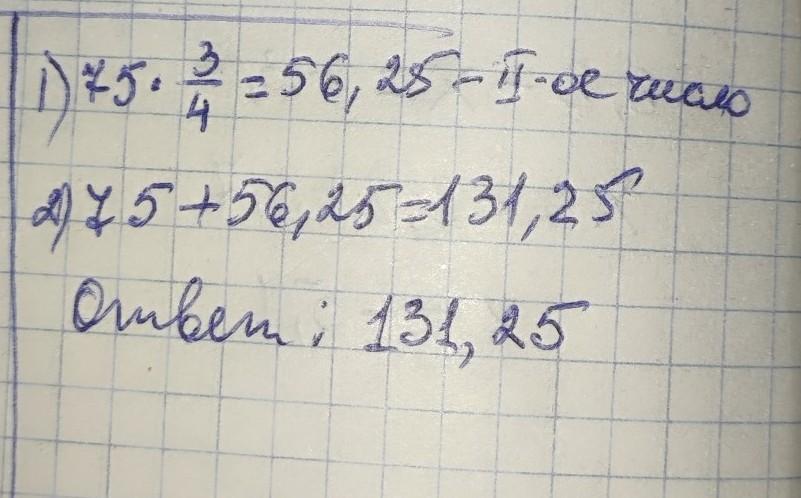 1) 75 · 3/4 = 56,25 - II-ое число
2) 75 + 56,25 = 131,25
Ответ: 131,25